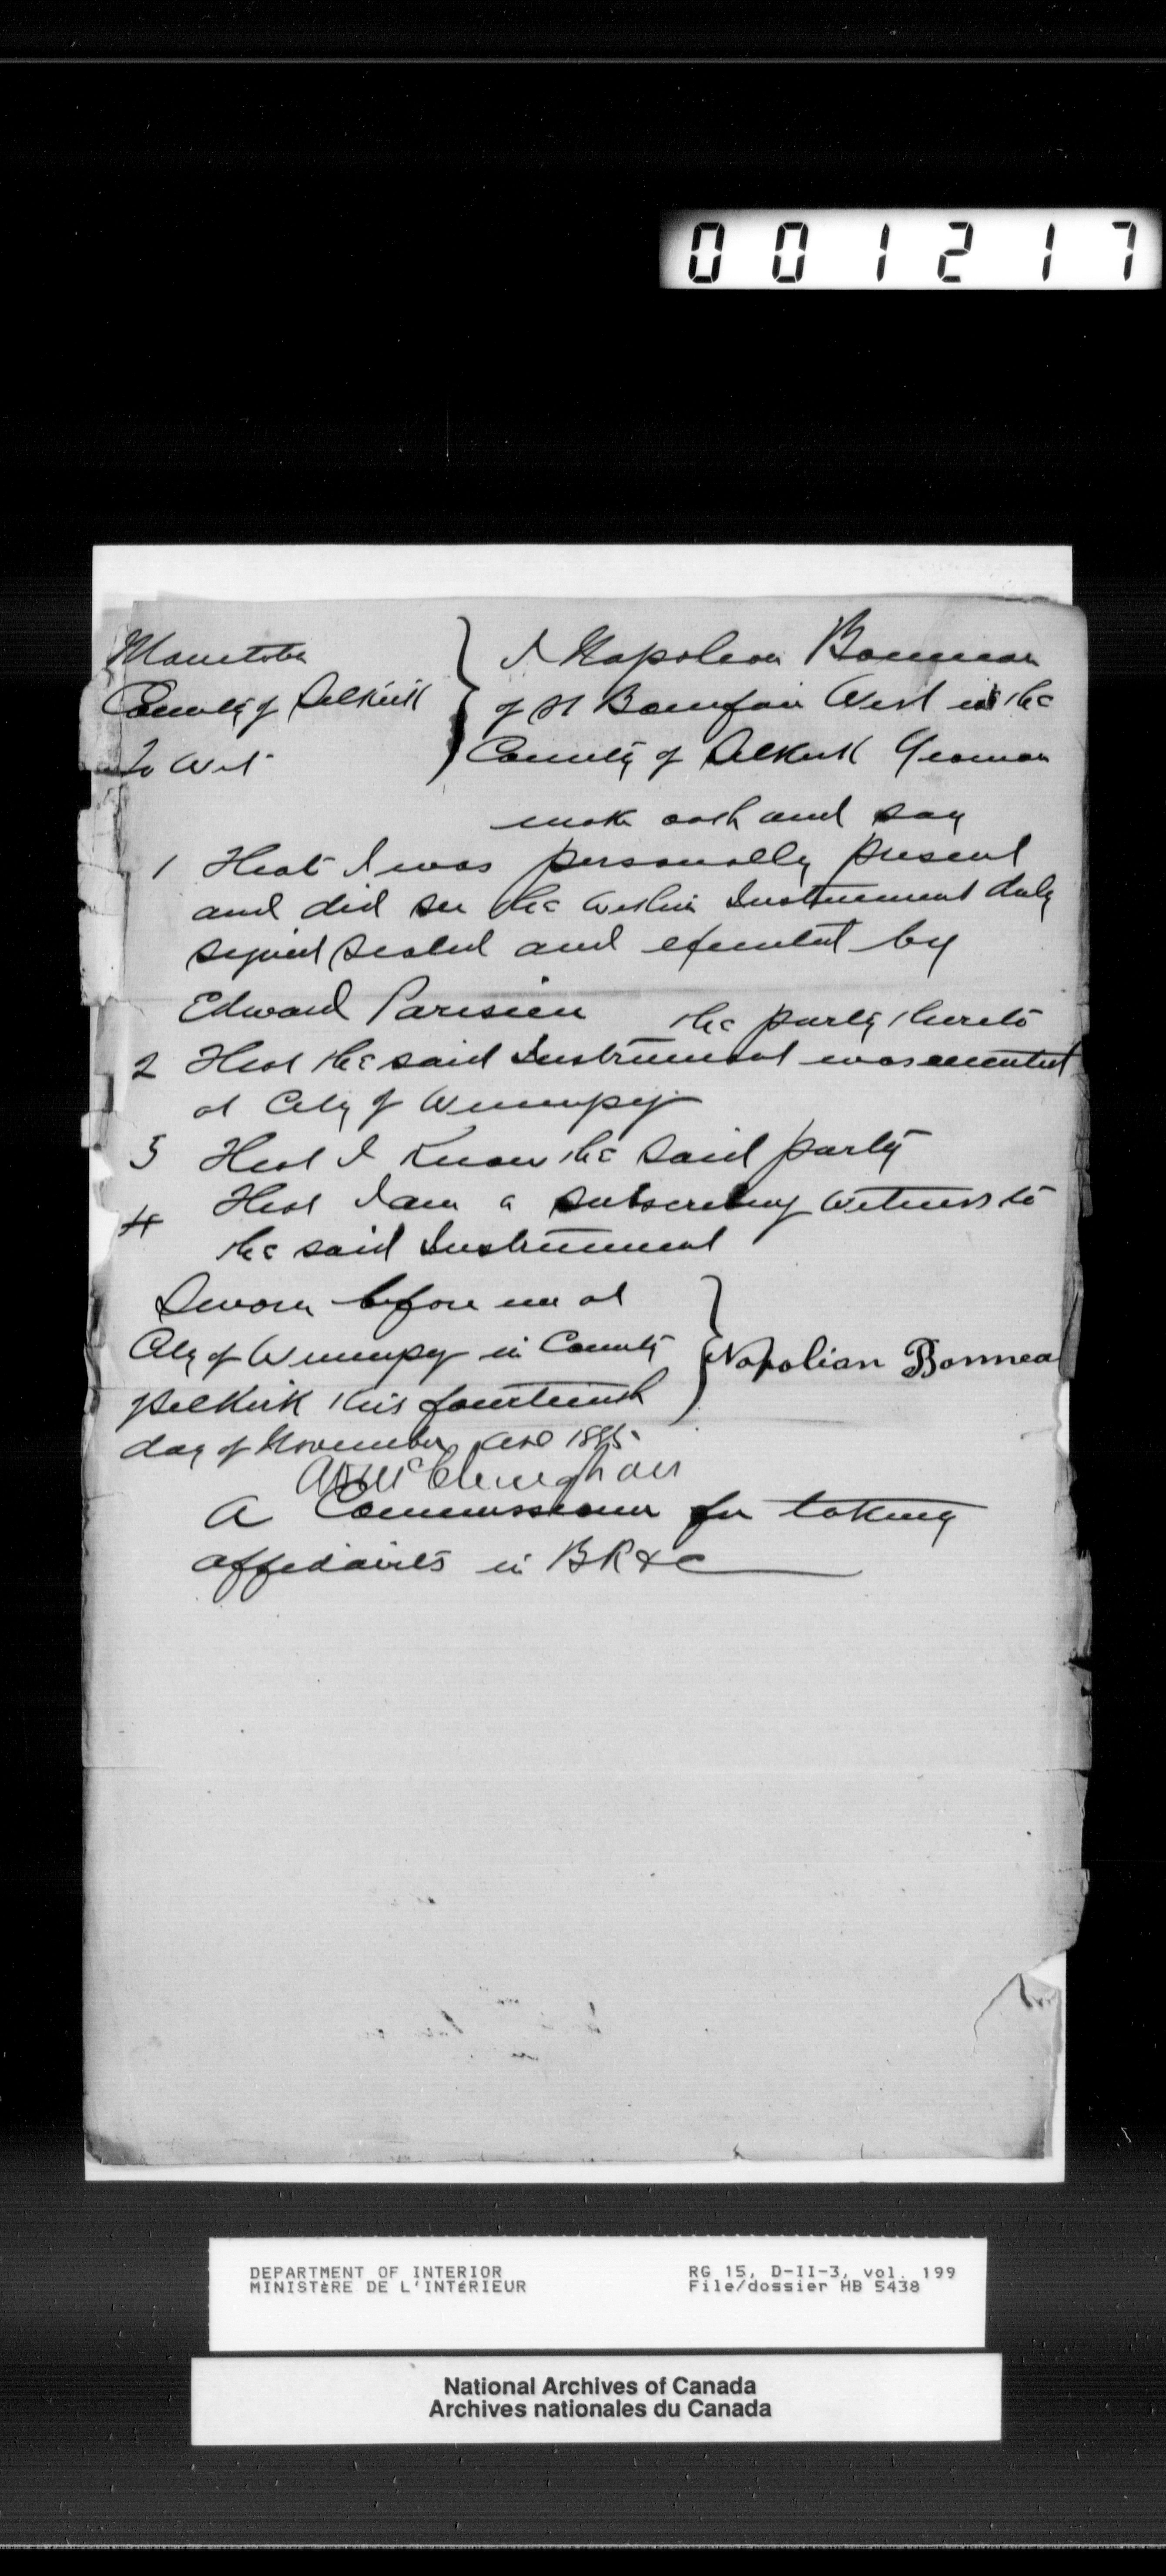 001217
Manitoba
County of Selkirk
To Wit
I Napoleon Bonneau
of St Boniface West in the
County of Selkirk Yeoman
make oath and say
1 That I was personally present
and did see the within Instrument duly
signed sealed and executed by
Edward Parisien the party thereto
2 That the said Instrument was executed
at City of Winnipeg
3 That I know the said party
4 That I am a subscribing witness to
the said Instrument
Sworn before me at
City of Winnipeg in County
Selkirk this fourteenth
day of November AD 1885
Napolian Bonnea
A Commissioner for taking
affidavits in BR &c
DEPARTMENT OF INTERIOR
MINISTÈRE DE L'INTÉRIEUR
RG 15, D-II-3, vol. 199
File/dossier HB 5438
National Archives of Canada
Archives nationales du Canada